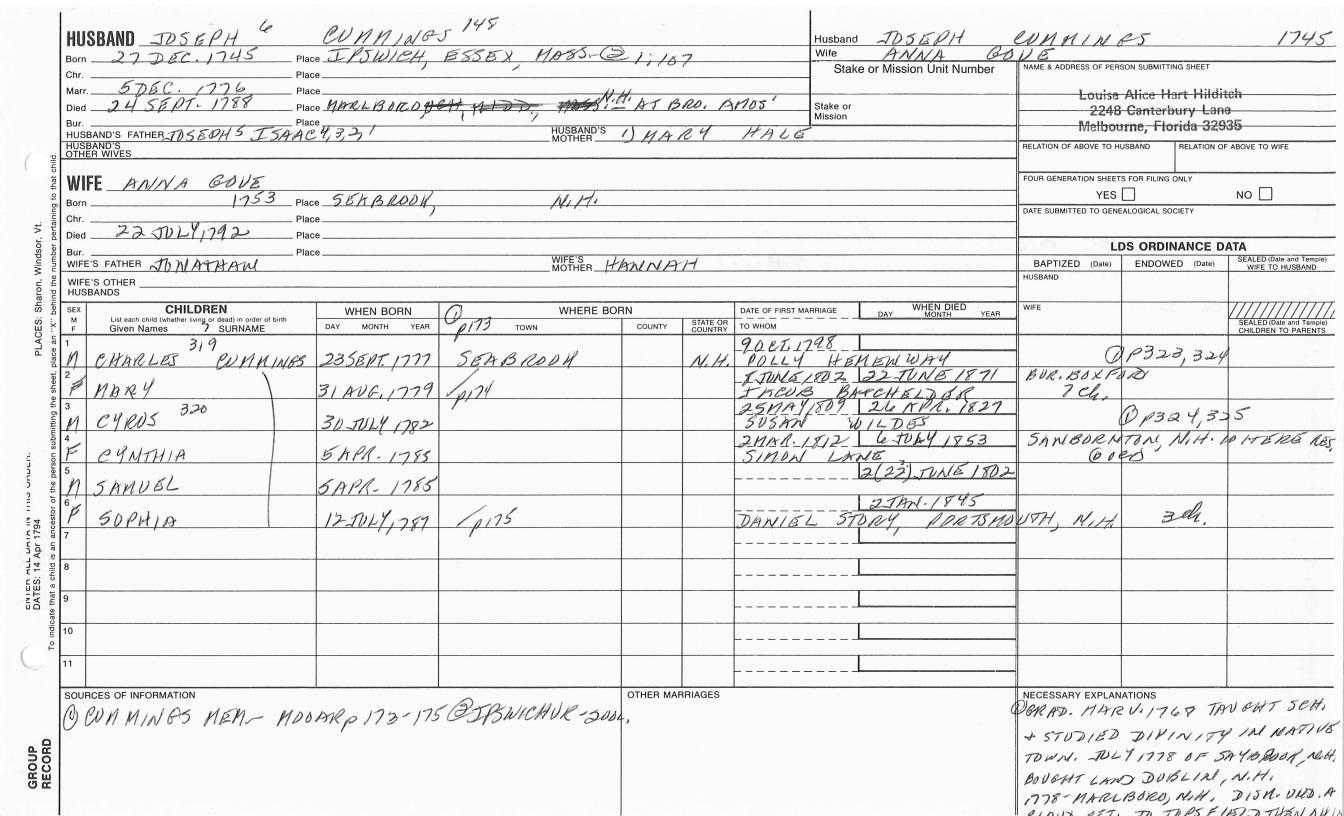 HUSBAND JOSEPH 6 CUMMINGS 148
Born 27 DEC. 1745 Place IPSWICH, ESSEX, MASS. ② 1:107
Chr. Place
Marr. 5 DEC. 1776 Place
Died 24 SEPT. 1788 Place MARLBORO N.H. AT BRO. AMOS'
Bur. Place
HUSBAND'S FATHER JOSEPH 5 ISAAC 4,3,2,1 HUSBAND'S MOTHER 1) MARY HALE
HUSBAND'S OTHER WIVES
WIFE ANNA GOVE
Born 1753 Place SEABROOK, N.H.
Chr. Place
Died 22 JULY, 1792 Place
Bur. Place
WIFE'S FATHER JONATHAN WIFE'S MOTHER HANNAH
WIFE'S OTHER HUSBANDS
Husband JOSEPH CUMMINGS 1745
Wife ANNA GOVE
Stake or Mission Unit Number
Stake or Mission
NAME & ADDRESS OF PERSON SUBMITTING SHEET
Louise Alice Hart Hilditch
2248 Canterbury Lane
Melbourne, Florida 32935
RELATION OF ABOVE TO HUSBAND RELATION OF ABOVE TO WIFE
FOUR GENERATION SHEETS FOR FILING ONLY
YES NO
DATE SUBMITTED TO GENEALOGICAL SOCIETY
LDS ORDINANCE DATA
BAPTIZED (Date) ENDOWED (Date) SEALED (Date and Temple) WIFE TO HUSBAND
HUSBAND
WIFE
SEALED (Date and Temple) CHILDREN TO PARENTS
SEX M F
CHILDREN
List each child (whether living or dead) in order of birth
Given Names 7 SURNAME
WHEN BORN
DAY MONTH YEAR
① p173 WHERE BORN
TOWN COUNTY STATE OR COUNTRY
DATE OF FIRST MARRIAGE
TO WHOM
WHEN DIED
DAY MONTH YEAR
1 M CHARLES 319 CUMMINGS 23 SEPT. 1777 SEABROOK N.H. 9 OCT. 1798 POLLY HEMENWAY ① P323, 324
2 F MARY 31 AUG. 1779 p174 1 JUNE 1802 22 JUNE 1871 JACOB BATCHELDER BUR. BOXFORD 7 Ch.
3 M CYRUS 320 30 JULY 1782 25 MAY 1809 26 APR. 1827 SUSAN WILDES ① P324, 325
4 F CYNTHIA 5 APR. 1785 2 MAR. 1812 6 JULY 1853 SIMON LANE SANBORNTON, N.H. WHERE RES.
5 M SAMUEL 5 APR. 1785 2(23) JUNE 1802
6 F SOPHIA 12 JULY, 1787 p175 2 JAN. 1845 DANIEL STORY, PORTSMOUTH, N.H. 3 ch.
7
8
9
10
11
SOURCES OF INFORMATION
① CUMMINGS MEM- MOOAR p 173-175 ② IPSWICH VR-
OTHER MARRIAGES
NECESSARY EXPLANATIONS
① GRAD. HARV. 1768 TAUGHT SCH.
+ STUDIED DIVINITY IN NATIVE
TOWN. JULY 1778 OF SAYBROOK, N.H.
BOUGHT LAND DUBLIN, N.H.
1778- MARLBORO, N.H. DISM. UND. A
CLOUD RET. TO TOPSFIELD THEN
PLACES: Sharon, Windsor, Vt.
ENTER ALL DATA IN THIS ORDER:
DATES: 14 Apr 1794
To indicate that a child is an ancestor of the person submitting the sheet, place an "X" behind the number pertaining to that child.
GROUP RECORD